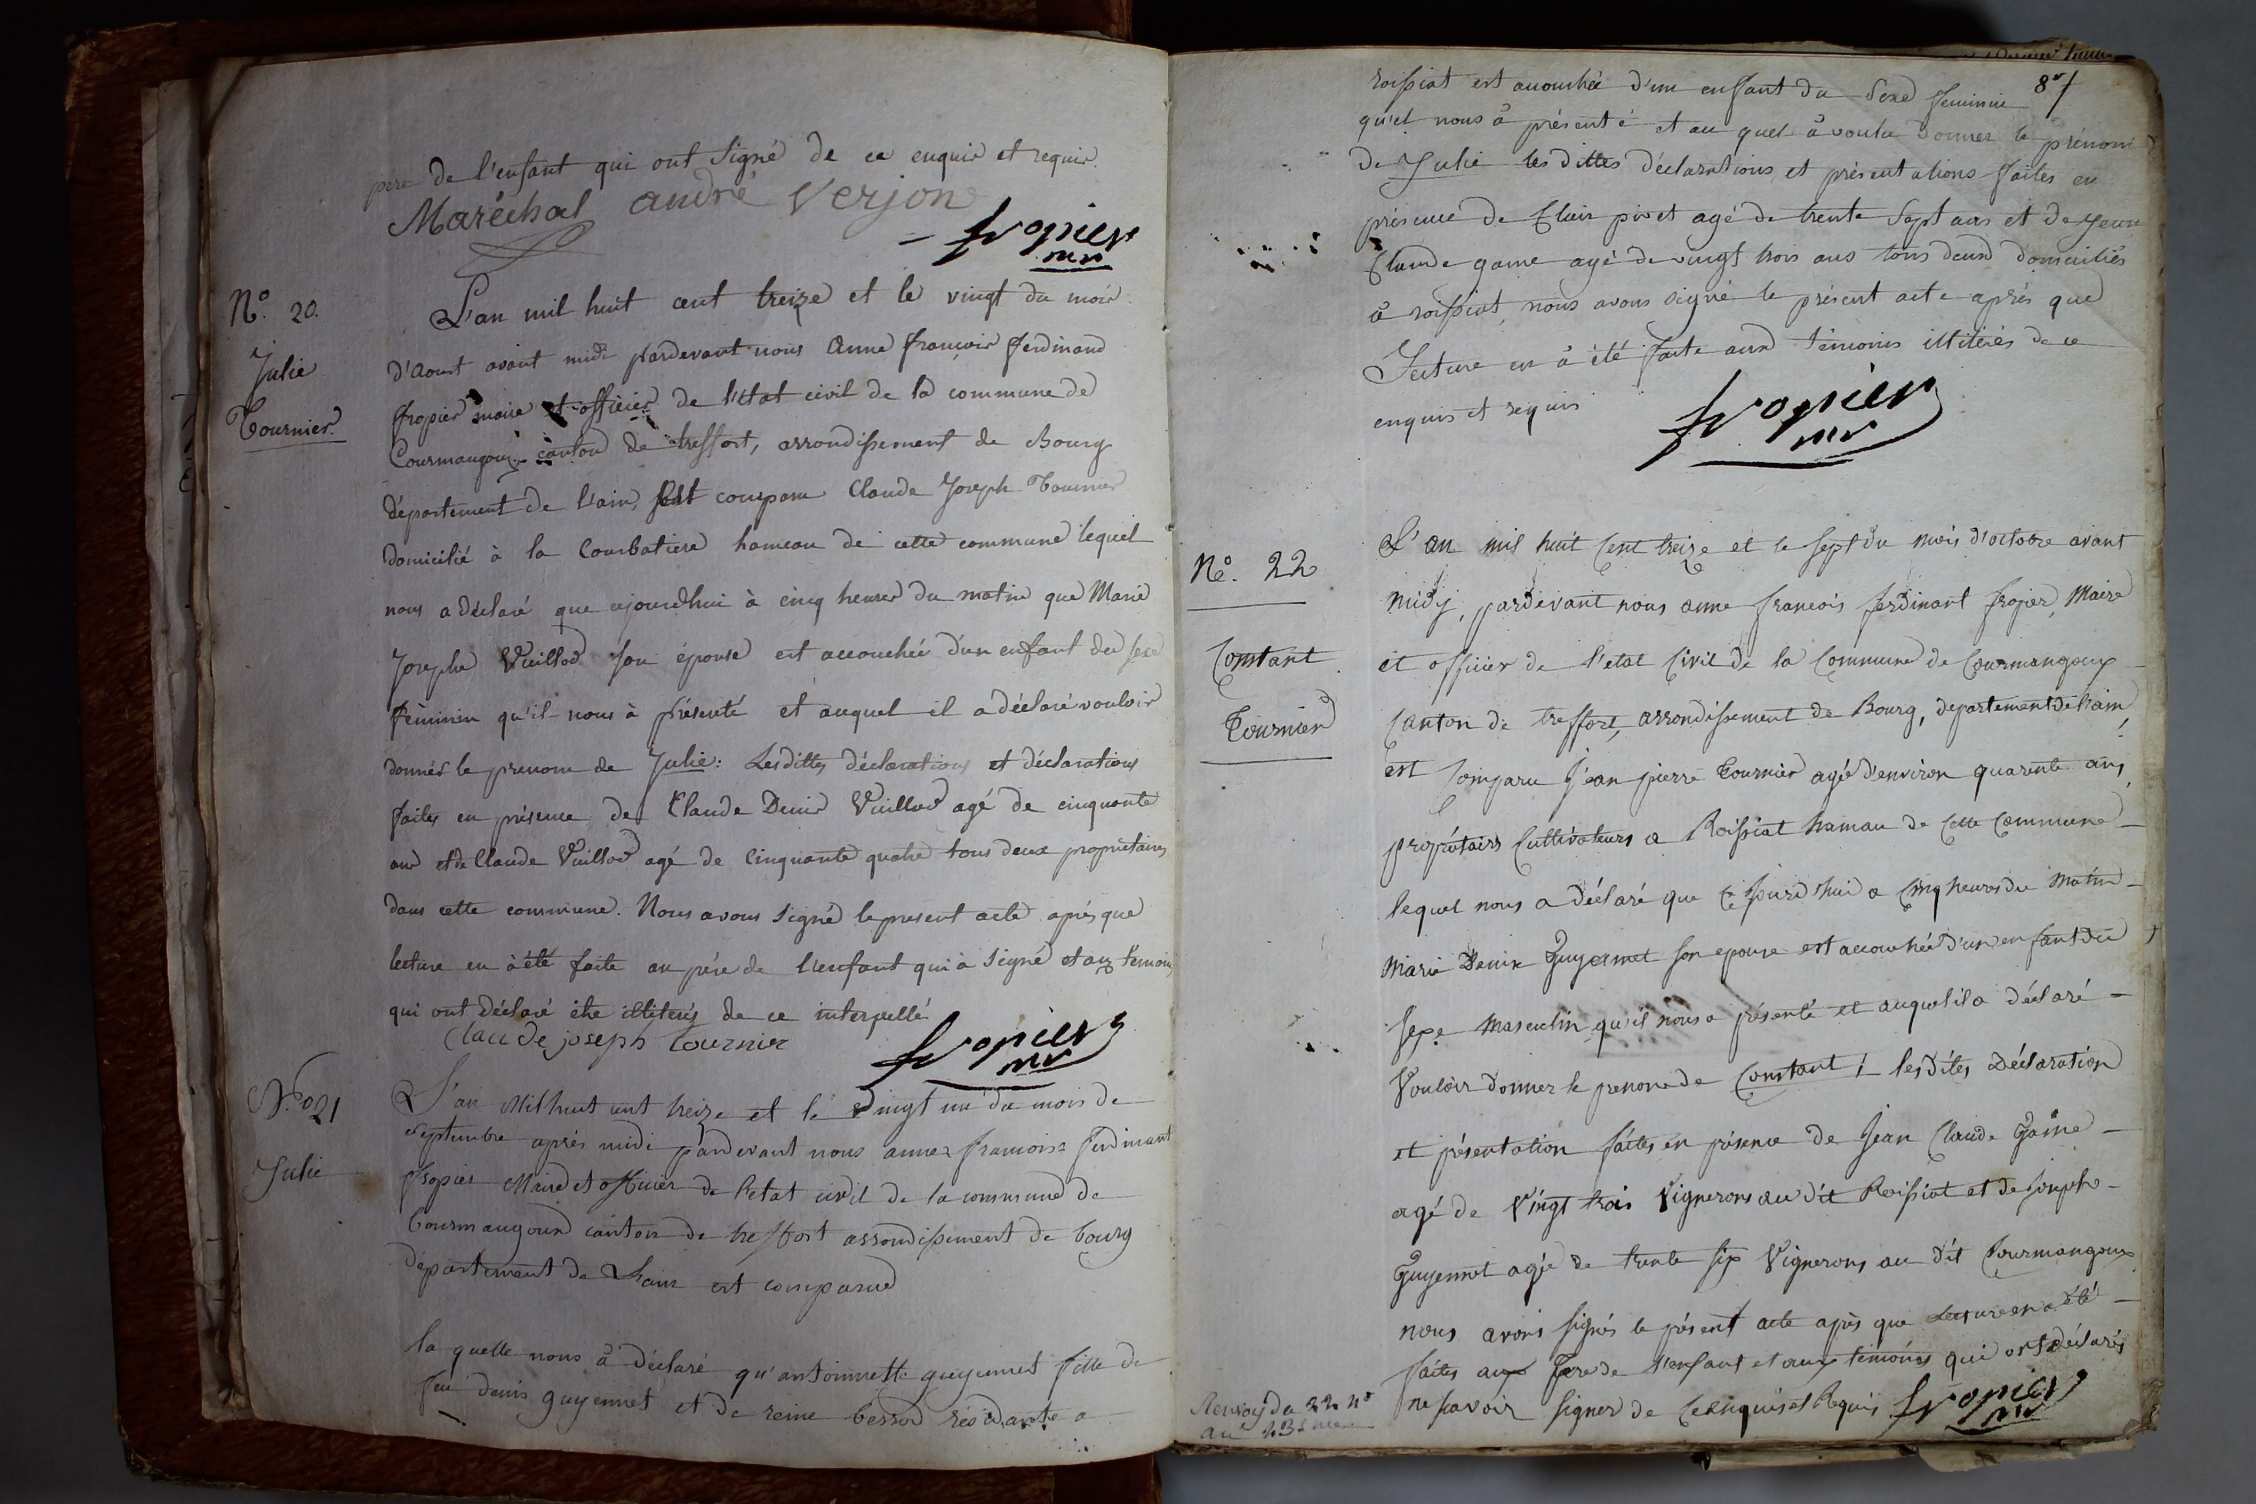 pere de l'enfant qui ont signé de ce enquir et requir.
Maréchal andré Verjon
fropier
mr
N.° 20.
Julie
Tournier
L'an mil huit cent treize et le vingt du moir
d'Aoust avant midi pardevant nous Anne françoir ferdinand
fropier maire et officier de l'état civil de la commune de
Courmangoux canton de treffort, arrondissement de Bourg
département de l'ain, est comparu Claude Joseph Tournier
domicilié à la Courbatiere hameau de cette commune lequel
nous a déclaré que aujourdhui à cinq heures du matin que Marie
Josephe Vuillod son épouse est accouchée d'un enfant du sexe
féminin qu'il nous à présenté et auquel il a déclaré vouloir
donner le prenom de Julie: Lesdittes déclarations et déclarations
faites en présence de Claude Denis Vuillod agé de cinquante
ans et de Claude Vuillod agé de Cinquante quatre tous deux proprietaires
dans cette commune. Nous avons signé le present acte aprés que
lecture en à été faite au pére de l'enfant qui à signé et aux témoins
qui ont déclaré être illiterés de ce interpellé
Claude joseph tournier
fropier
mr
N.° 21
Julie
L'an Mil huit cent treize et le vingt un du mois de
septembre après midi pardevant nous anne francois ferdinant
fropier Maire et officier de l'etat civil de la commune de
Courmangoux canton de treffort arrondissement de bourg
département de L'ain est comparue
la quelle nous à déclaré qu'antoinette guyennet fille de
feu denis guyennet et de reine bessod résidante a
87
roissiat est accouchée d'un enfant du Sexe feminin
qu'el nous à présenté et au quel à voulu donner le prénom
de Julie les dittes déclarations et présentations faites en
présence de Clair pivet agé de trente sept ans et de jean
Claude game agé de vingt trois ans tous deux domiciliés
à roissiat, nous avons signé le présent acte aprés que
Lecture en à été faite aux témoins illitérés de ce
enquis et requis
fropier
mr
N.° 22
Constant
Tournier
L'an mil huit Cent treize et le sept du mois d'octobre avant
midy, pardevant nous anne francois ferdinant fropier, Maire
et officier de l'etat Civil de la Commune de Courmangoux
Canton de treffort, arrondissement de Bourg, departement de l'ain,
est Comparu Jean pierre Tournier agé d'environ quarente ans,
propriétaires Cultivateurs a Roissiat hamau de Cette Commune
lequel nous a déclaré que Ce jourd'hui a Cinq heures du Matin
Marie Denise Guyennet son epouse est accouchée d'un enfant du
sexe Masculin qu'il nous a présenté et auquel il a déclaré
Vouloir donner le prenom de Constant; les dites Déclaration
et présentation faites en présence de Jean Claude Game
agé de Vingt trois Vignerons au dit Roissiat et de Joseph
Guyennet agée de trente six Vignerons au dit Courmangoux
nous avons signés le présent acte après que Lecture en a été
faites aux Pere de l'enfant et aux témoins qui ont déclarés
ne savoir signer de Ce enquis et Requis
fropier
mr
Renvoy du 22 n°
au 23